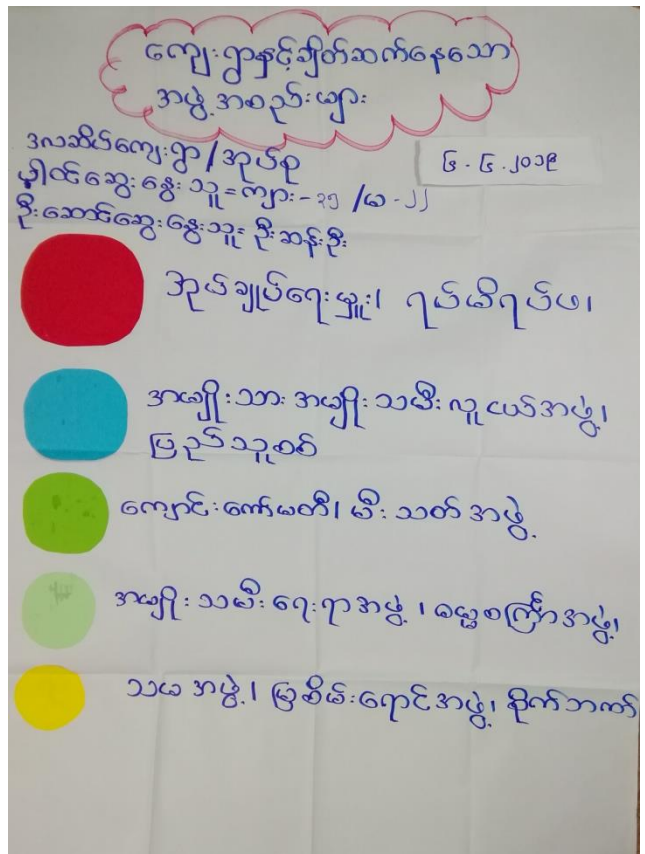 ကျေးရွာနှင့်ချိတ်ဆက်နေသော
အဖွဲ့အစည်းများ
ဒလဆိပ်ကျေးရွာ/အုပ်စု
၆.၆.၂၀၁၉
ပူါဝင်ဆွေးနွေးသူ=ကျား-၃၅/မ-၂၂
ဦးဆောင်ဆွေးနွေးသူ=ဦးဆန်းဦး
အုပ်ချုပ်ရေးမှူး၊ ရပ်မိရပ်ဖ၊
အမျိုးသား အမျိုးသမီးလူငယ်အဖွဲ့၊
ပြည်သူစစ်
ကျောင်းကော်မတီ၊ မီးသတ်အဖွဲ့
အမျိုးသမီးရေးရာအဖွဲ့၊ ဓမ္မစကြာအဖွဲ့၊
သမအဖွဲ့၊ မြစိမ်းရောင်အဖွဲ့၊ စိုက်ဘဏ်